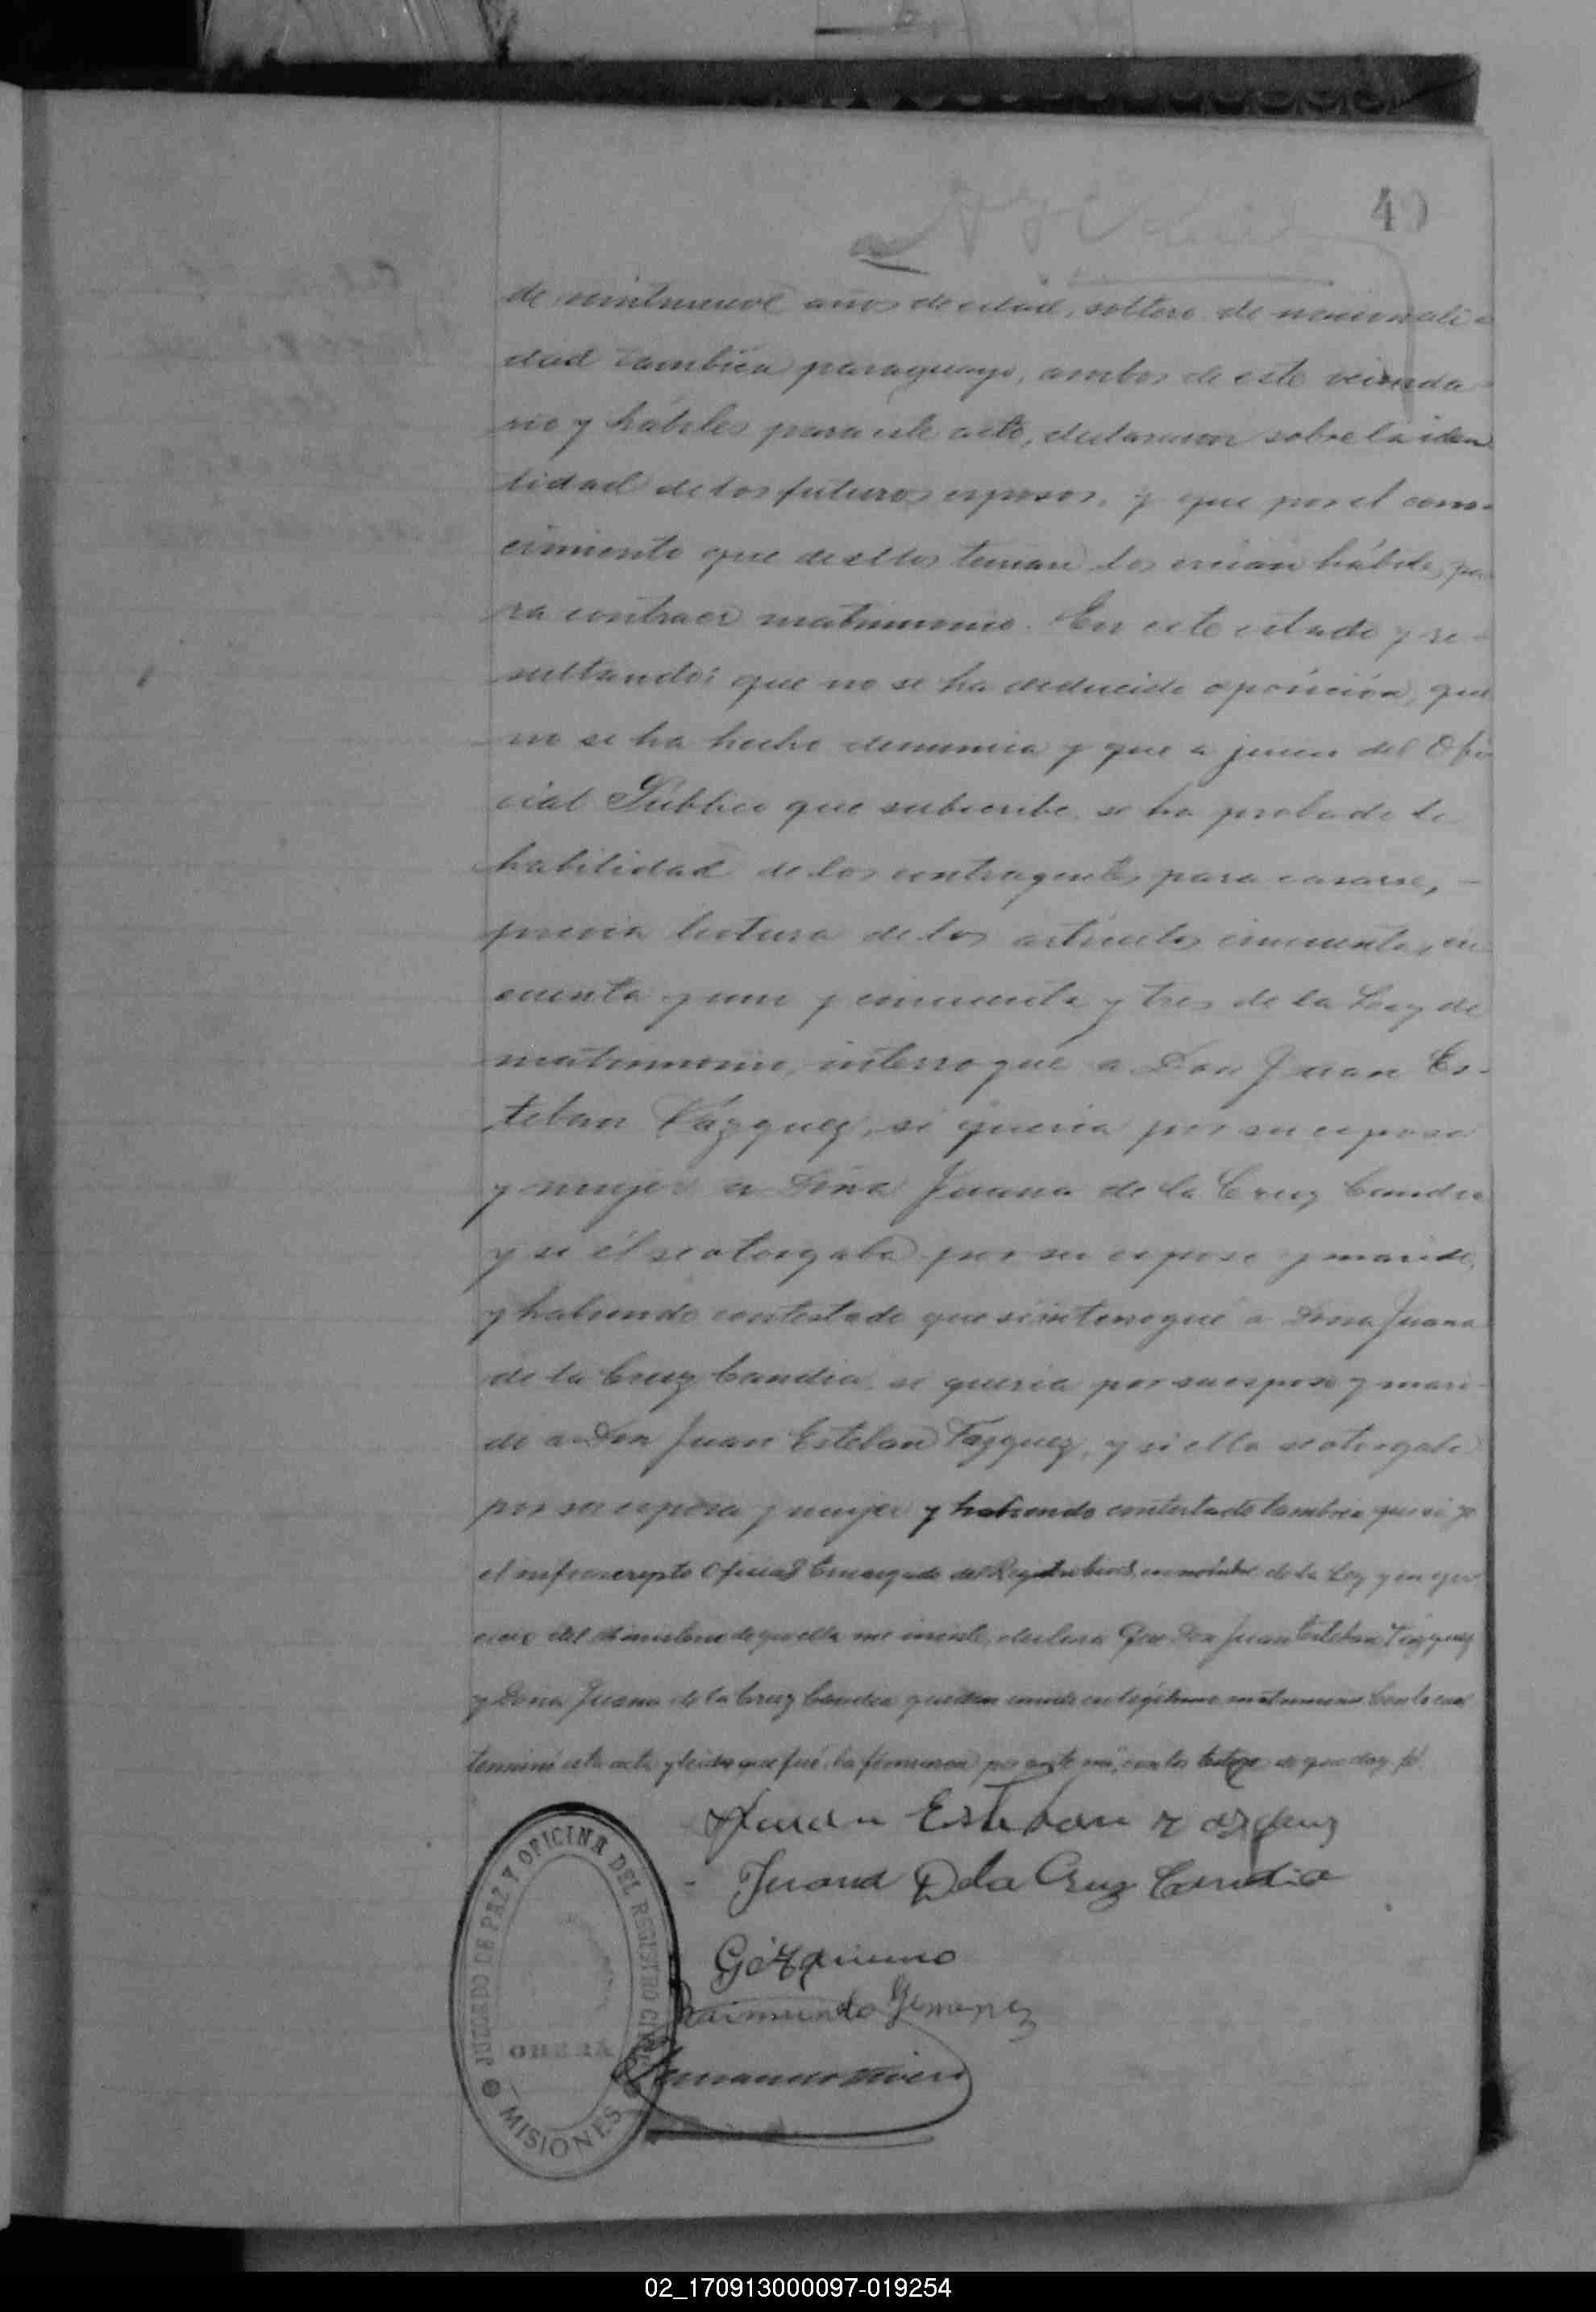 40
de veintinueve años de edad, soltero de nacionali-
dad también paraguayo, ambos de este vecinda-
rio y hábiles para este acto, declararon sobre la iden
tidad de los futuros esposos, y que por el cono-
cimiento que de ellos tenian los creian hábiles pa
ra contraer matrimonio. En este estado y re-
sultando: que no se ha deducido oposición, que
no se ha hecho denuncia y que a juicio del Ofi
cial Público que subscribe, se ha probado la
habilidad de los contrayentes para casarse, -
previa lectura de los artículos cincuenta, cin
cuenta y uno y cincuenta y tres de la Ley de
matrimonio, interrogué a Don Juan Es-
teban Vázquez, si queria por su esposa
y mujer a Doña Juana de la Cruz Candia
y si él se otorgaba por su esposo y marido,
y habiendo contestado que sí interrogué a Doña Juana
de la Cruz Candia si queria por su esposo y mari-
do a Don Juan Esteban Vazquez, y si ella se otorgaba
por su esposa y mujer y habiendo contestado tambien que si yo
el infrascripto Oficial Encargado del Registro Civil, en nombre de la Ley y en ejer
cicio del Ministerio de que ella me inviste, declaro Que Don Juan Esteban Vázquez
y Doña Juana de la Cruz Candia quedan unidos en legítimo matrimonio Con lo cual
terminó esta acta y leida que fué la firmaron por ante mí, con los testigos de que doy fé.
Juan Esteban Vazquez
Juana D la Cruz Candia
Raimundo Gimenez
JUZGADO DE PAZ Y OFICINA DEL REGISTRO CIVIL
OBERÁ
MISIONES
02_170913000097-019254